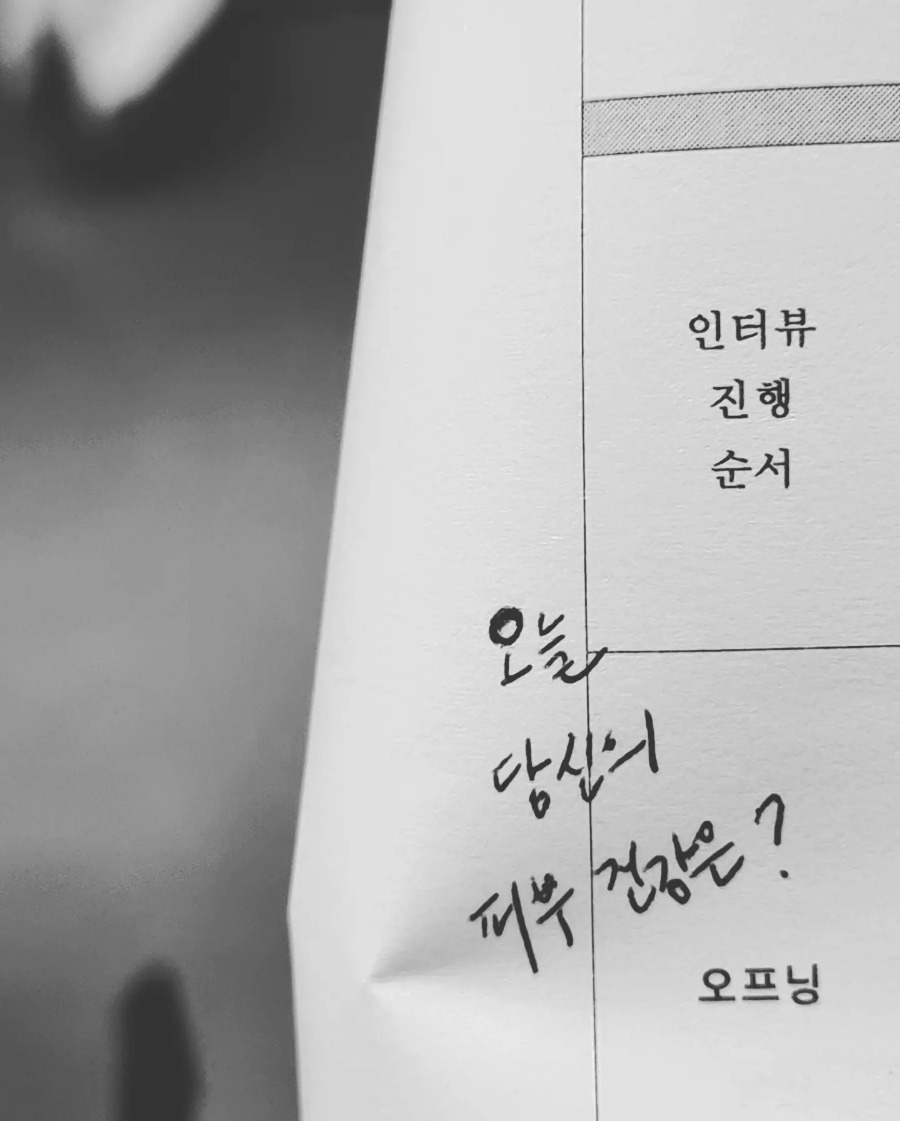 인터뷰
진행
순서
오늘
당신의
피부 건강은?
오프닝